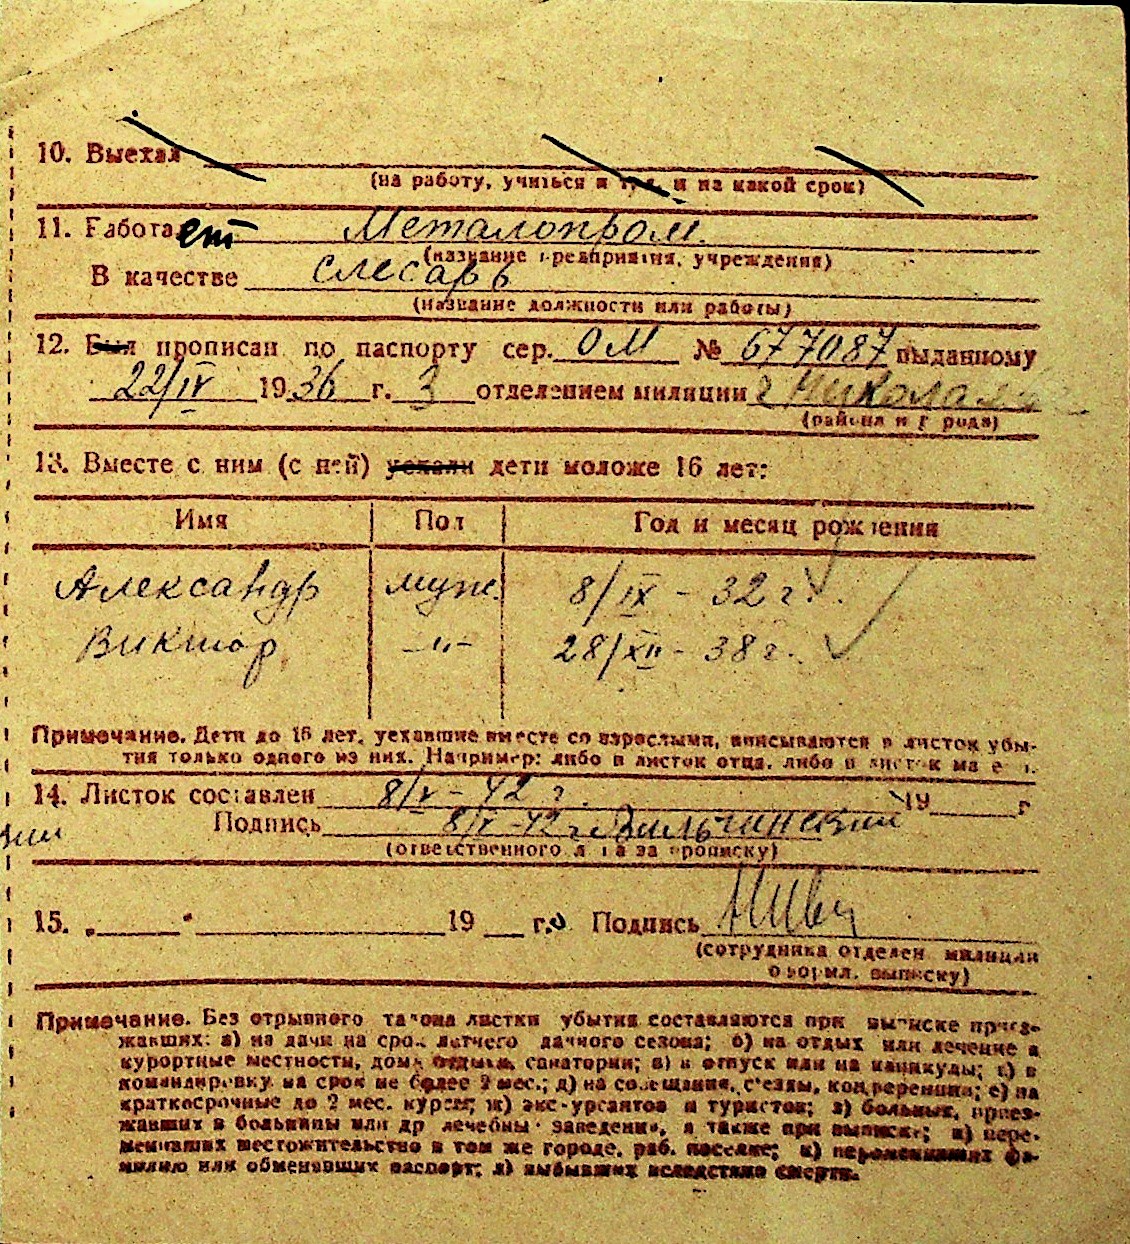 10. Выехал
(на работу, учиться и т. д. и на какой срок)
11. Работает Металопром.
(название предприятия, учреждения)
В качестве слесарь
(название должности или работы)
12. Был прописан по паспорту сер. ОМ № 677087 выданному
22/IV 1936 г. 3 отделением милиции г Николаев
(района и города)
13. Вместе с ним (с ней) уехали дети моложе 16 лет:
Имя Пол Год и месяц рождения
Александр муж. 8/IX - 32 г.
Виктор -"- 28/XII - 38 г.
Примечание. Дети до 16 лет, уехавшие вместе со взрослыми, вписываются в листок убы-
тия только одного из них. Например: либо в листок отца, либо в листок матери.
14. Листок составлен 8/X - 42 г. 19 г
Подпись 8/X-42 г.
(ответственного лица за прописку)
15. „ " 19 г. Подпись
(сотрудника отделен. милиции
оформл. выписку)
Примечание. Без отрывного талона листки убытия составляются при выписке приез-
жавших: а) на дачи на срок летнего дачного сезона; б) на отдых или лечение в
курортные местности, дома отдыха, санатории; в) в отпуск или на каникулы; г) в
командировку на срок не более 2 мес.; д) на совещания, с'езды, конференции; е) на
краткосрочные до 2 мес. курсы; ж) экскурсантов и туристов; з) больных, приез-
жавших в больницы или др лечебные заведения, а также при выписке; и) пере-
менивших местожительство в том же городе, раб. поселке; к) переменивших фа-
милию или обменявших паспорт; л) выбывших вследствие смерти.